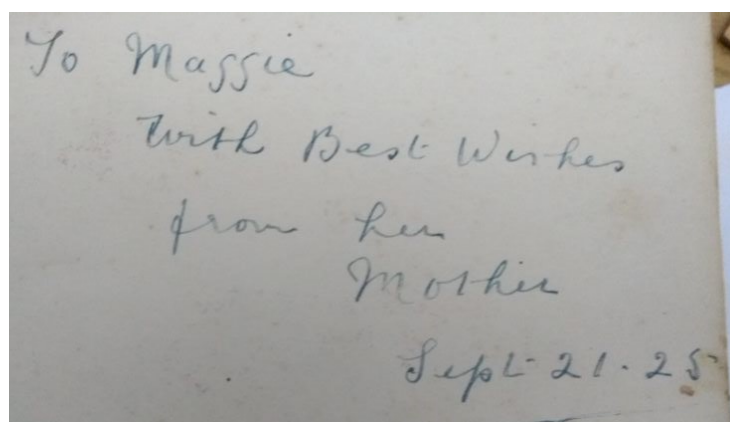 To Maggie
With Best Wishes
from her
Mother
Sept 21.25